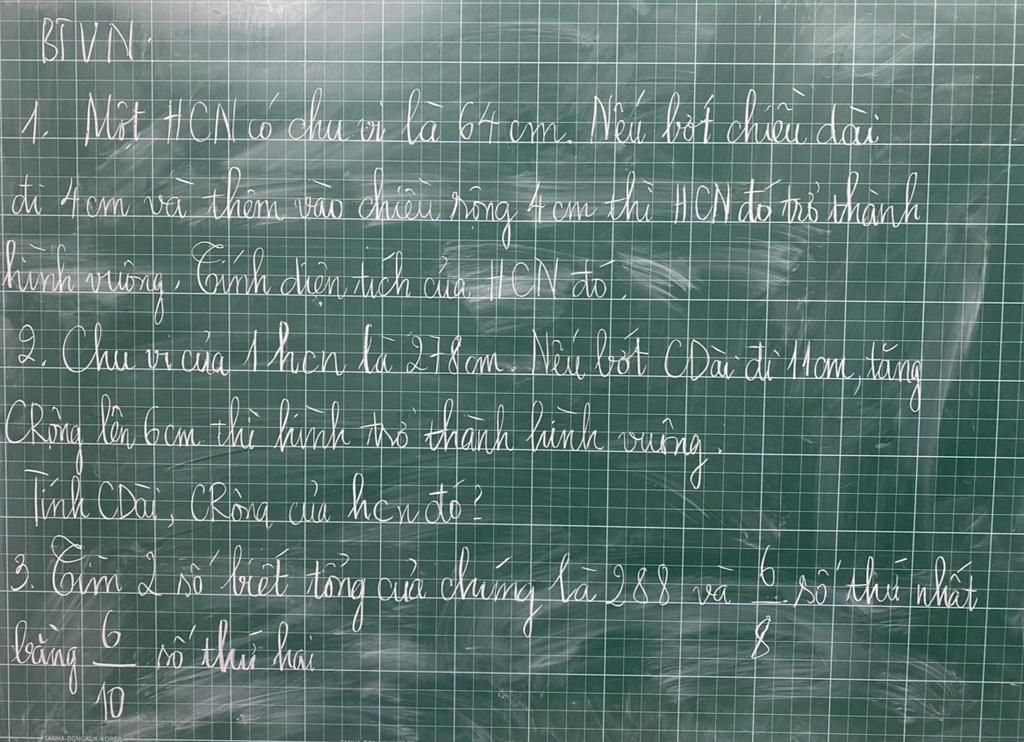 BTVN.
1. Một HCN có chu vi là 64 cm. Nếu bớt chiều dài
đi 4cm và thêm vào chiều rộng 4cm thì HCN đó trở thành
hình vuông. Tính diện tích của HCN đó.
2. Chu vi của 1 hcn là 278cm. Nếu bớt CDài đi 11cm, tăng
CRộng lên 6cm thì hình trở thành hình vuông.
Tính CDài, CRộng của hcn đó?
3. Tìm 2 số biết tổng của chúng là 288 và 6/8 số thứ nhất
bằng 6/10 số thứ hai
TANHA-DONGKUK-KOREA